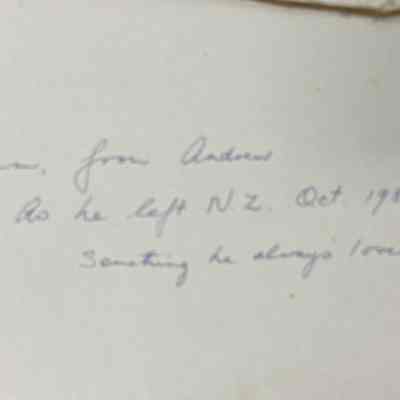 from Andrew
As he left N.Z. Oct. 198
Something he always love